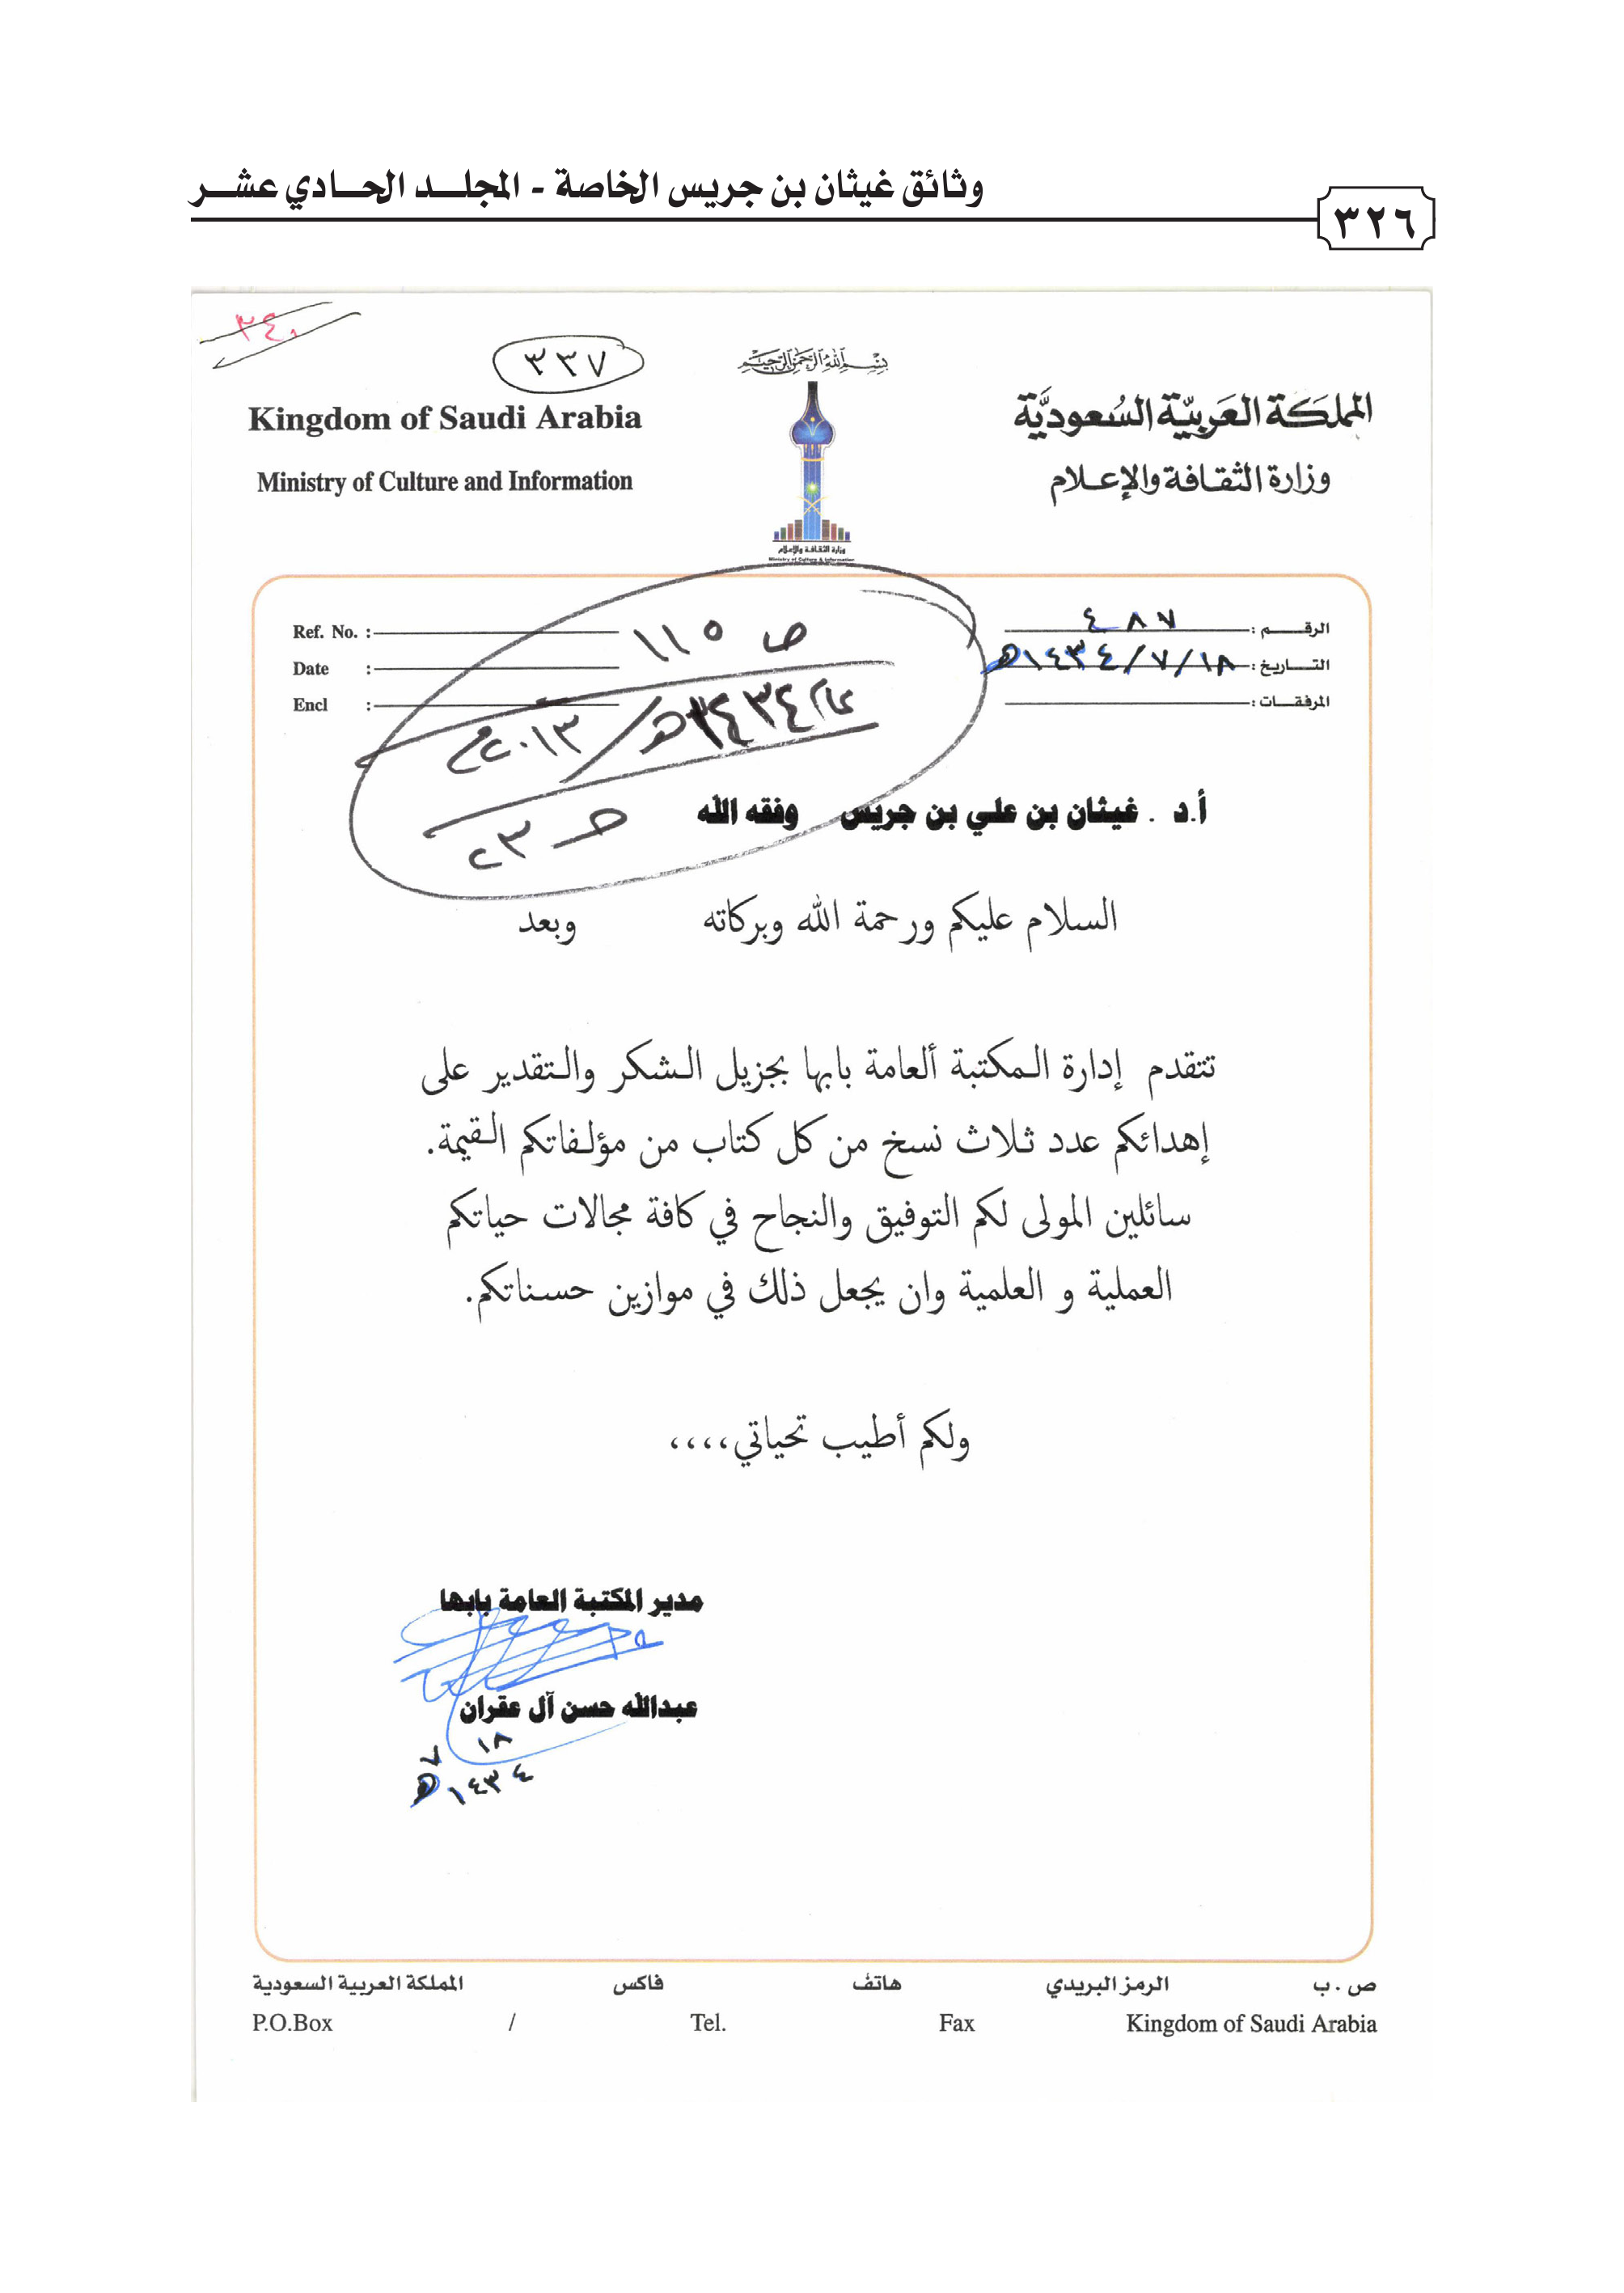 وثائق غيثان بن جريس الخاصة - المجلد الحادي عشر
٣٢٦
٣٤٠
٣٣٧
بسم الله الرحمن الرحيم
المملكة العربية السعودية
Kingdom of Saudi Arabia
وزارة الثقافة والإعلام
Ministry of Culture and Information
وزارة الثقافة والإعلام
Ministry of Culture & Information
الرقم : ٤٨٧
Ref. No. :
التاريخ : ١٨/٧/١٤٣٤هـ
Date :
المرفقات :
Encl :
ص ١١٥
١٤٣٤هـ/٢٠١٣م
حـ ٢٣
أ.د . غيثان بن علي بن جريس وفقه الله
السلام عليكم ورحمة الله وبركاته وبعد
تتقدم إدارة المكتبة ألعامة بابها بجزيل الشكر والتقدير على
إهدائكم عدد ثلاث نسخ من كل كتاب من مؤلفاتكم القيمة.
سائلين المولى لكم التوفيق والنجاح في كافة مجالات حياتكم
العملية و العلمية وان يجعل ذلك في موازين حسناتكم.
ولكم أطيب تحياتي،،،،
مدير المكتبة العامة بابها
عبدالله حسن آل عقران
١٨ ٧
١٤٣٤هـ
ص . ب الرمز البريدي هاتف فاكس المملكة العربية السعودية
P.O.Box / Tel. Fax Kingdom of Saudi Arabia